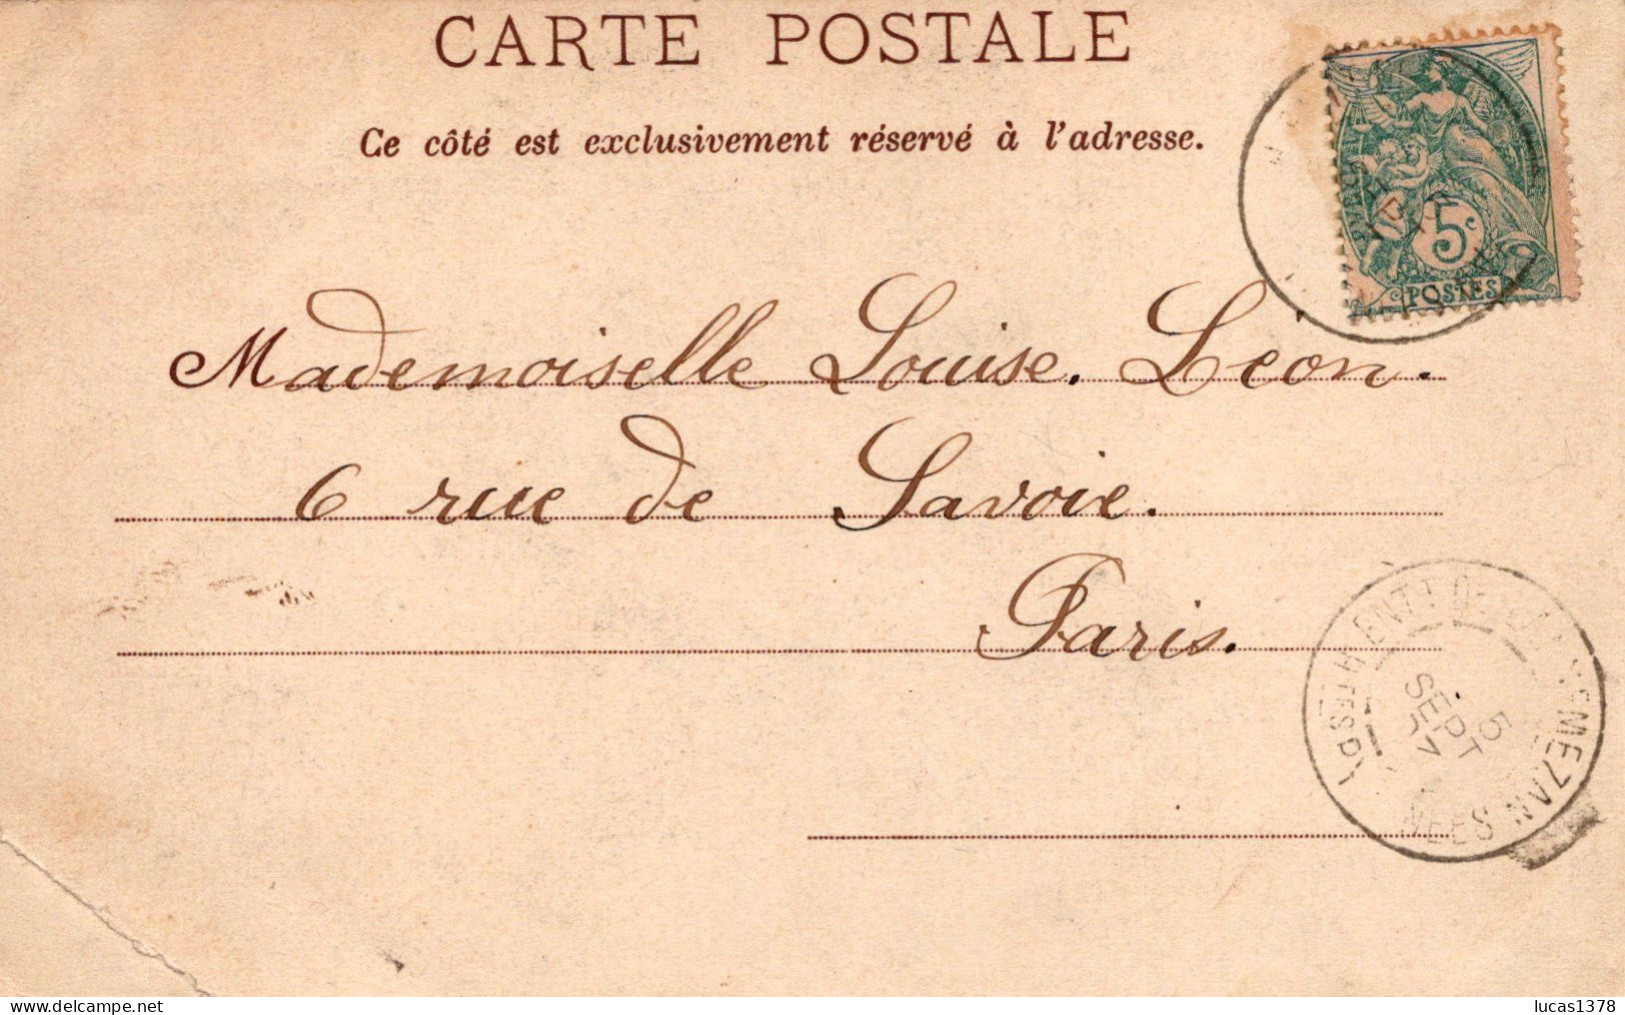 CARTE POSTALE
Ce côté est exclusivement réservé à l'adresse.
5c
POSTES
Mademoiselle Louise. Léon.
6 rue de Savoie.
Paris.
5
SEPT
delcampe.net
lucas1378